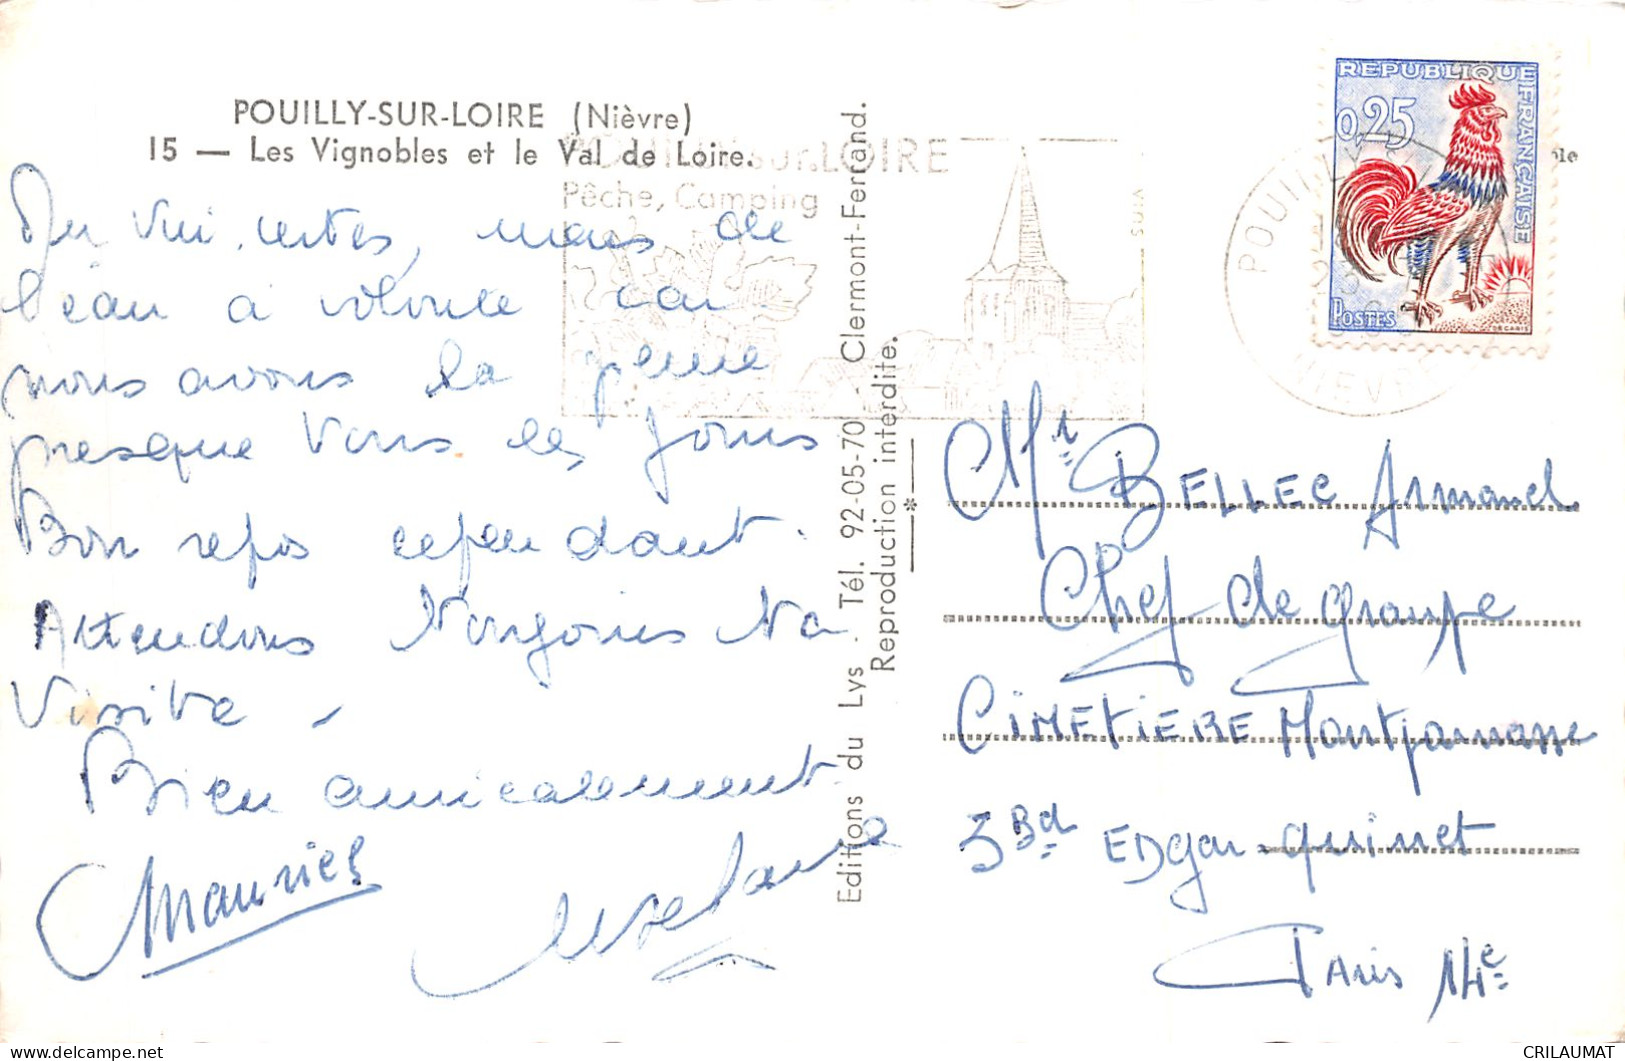 POUILLY-SUR-LOIRE (Nièvre)
15 — Les Vignobles et le Val de Loire.
POUILLY sur LOIRE
Pêche, Camping
Du Vin, certes, mais de
l'eau à volonté car
nous avons la pluie
presque Tous les jours
Bon repos cependant.
Attendons Toujours Ta
Visite -
Bien amicalement
Maurice
Editions du Lys - Tél. 92-05-70 - Clermont-Ferrand.
Reproduction interdite.
REPUBLIQUE FRANÇAISE
0,25
POSTES
DECARIS
POUILLY
NIEVRE
Mr BELLEC Armand
Chef de groupe
CIMETIERE Montparnasse
3 Bd EDgar-Quinet
PARIS 14e
CRILAUMAT